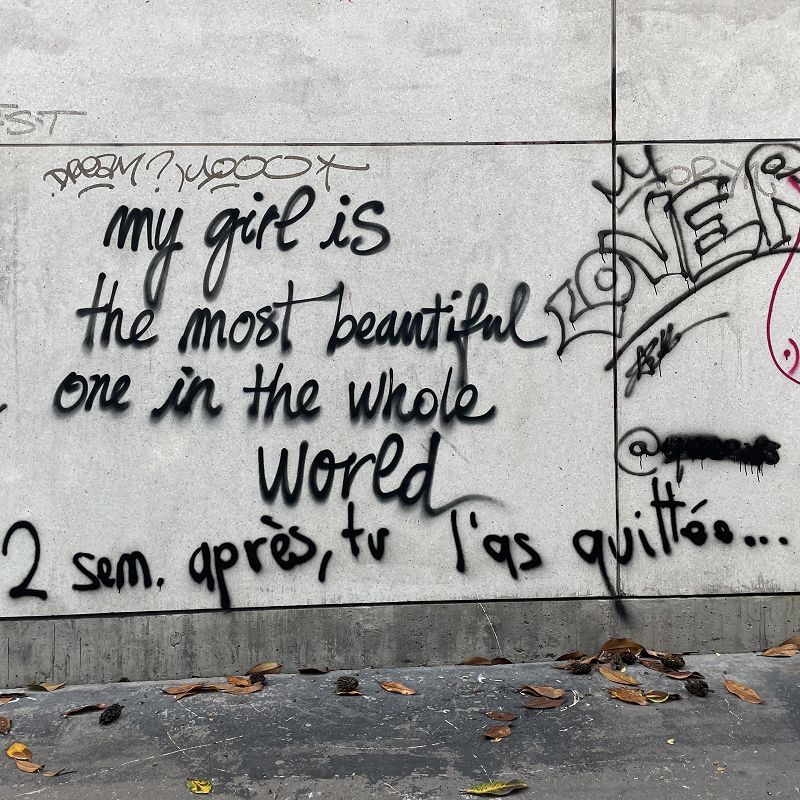 EST
DREAM?
my girl is
the most beautiful
one in the whole
world
2 sem. après, tu l'as quittée...
LOVER
@